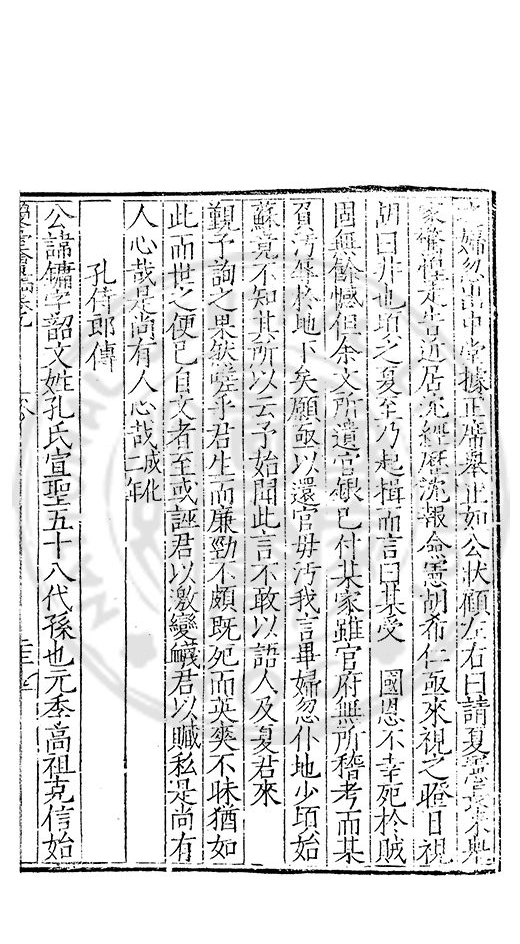 婦忽出中堂據正席舉止如公狀顧左右曰請夏憲長來舉
家驚怪走告近居沈經歷沈報僉憲胡希仁亟來視之瞪目視
胡曰非也頃之夏至乃起揖而言曰某受 國恩不幸死於賊
固無餘憾但余文所遺官銀已付某家雖官府無所稽考而某
負汚辱於地下矣願亟以還官毋汚我言畢婦忽仆地少頃始
蘇竟不知其所以云予始聞此言不敢以語人及夏君來
覲予詢之果然嗟乎君生而廉勁不頗既死而英爽不昧猶如
此而世之便已自文者至或誣君以激變衊君以贓私是尚有
人心哉是尚有人心哉成化二年
孔侍郎傳
公諱鏞字韶文姓孔氏宣聖五十八代孫也元季高祖克信始